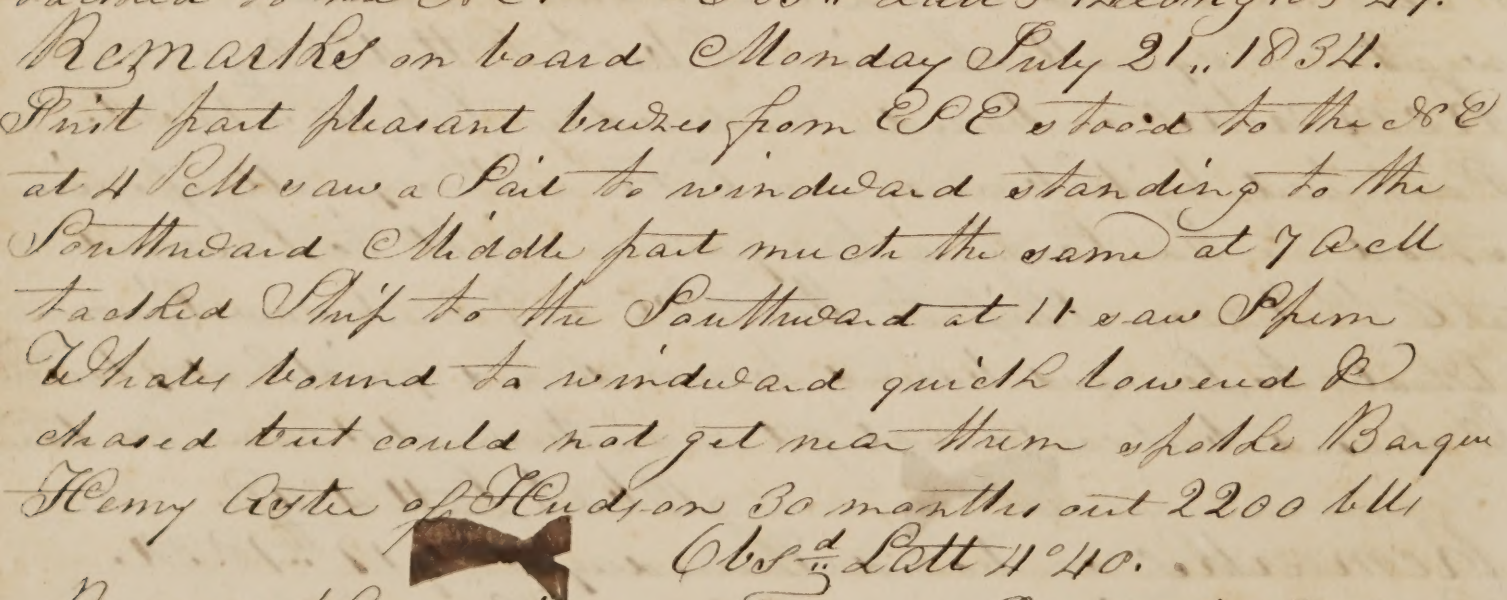 Remarks on board Monday July 21,, 1834.
First part pleasant breezes from ESE stood to the NE
at 4 PM saw a Sail to windward standing to the
Southward Middle part much the same at 7 AM
tacked Ship to the Southward at 11 saw Sperm
Whales bound to windward quick lowered &
chased but could not get near them spoke Barque
Henry Aster of Hudson 30 months out 2200 bbls
Obsd Latt 4°40.